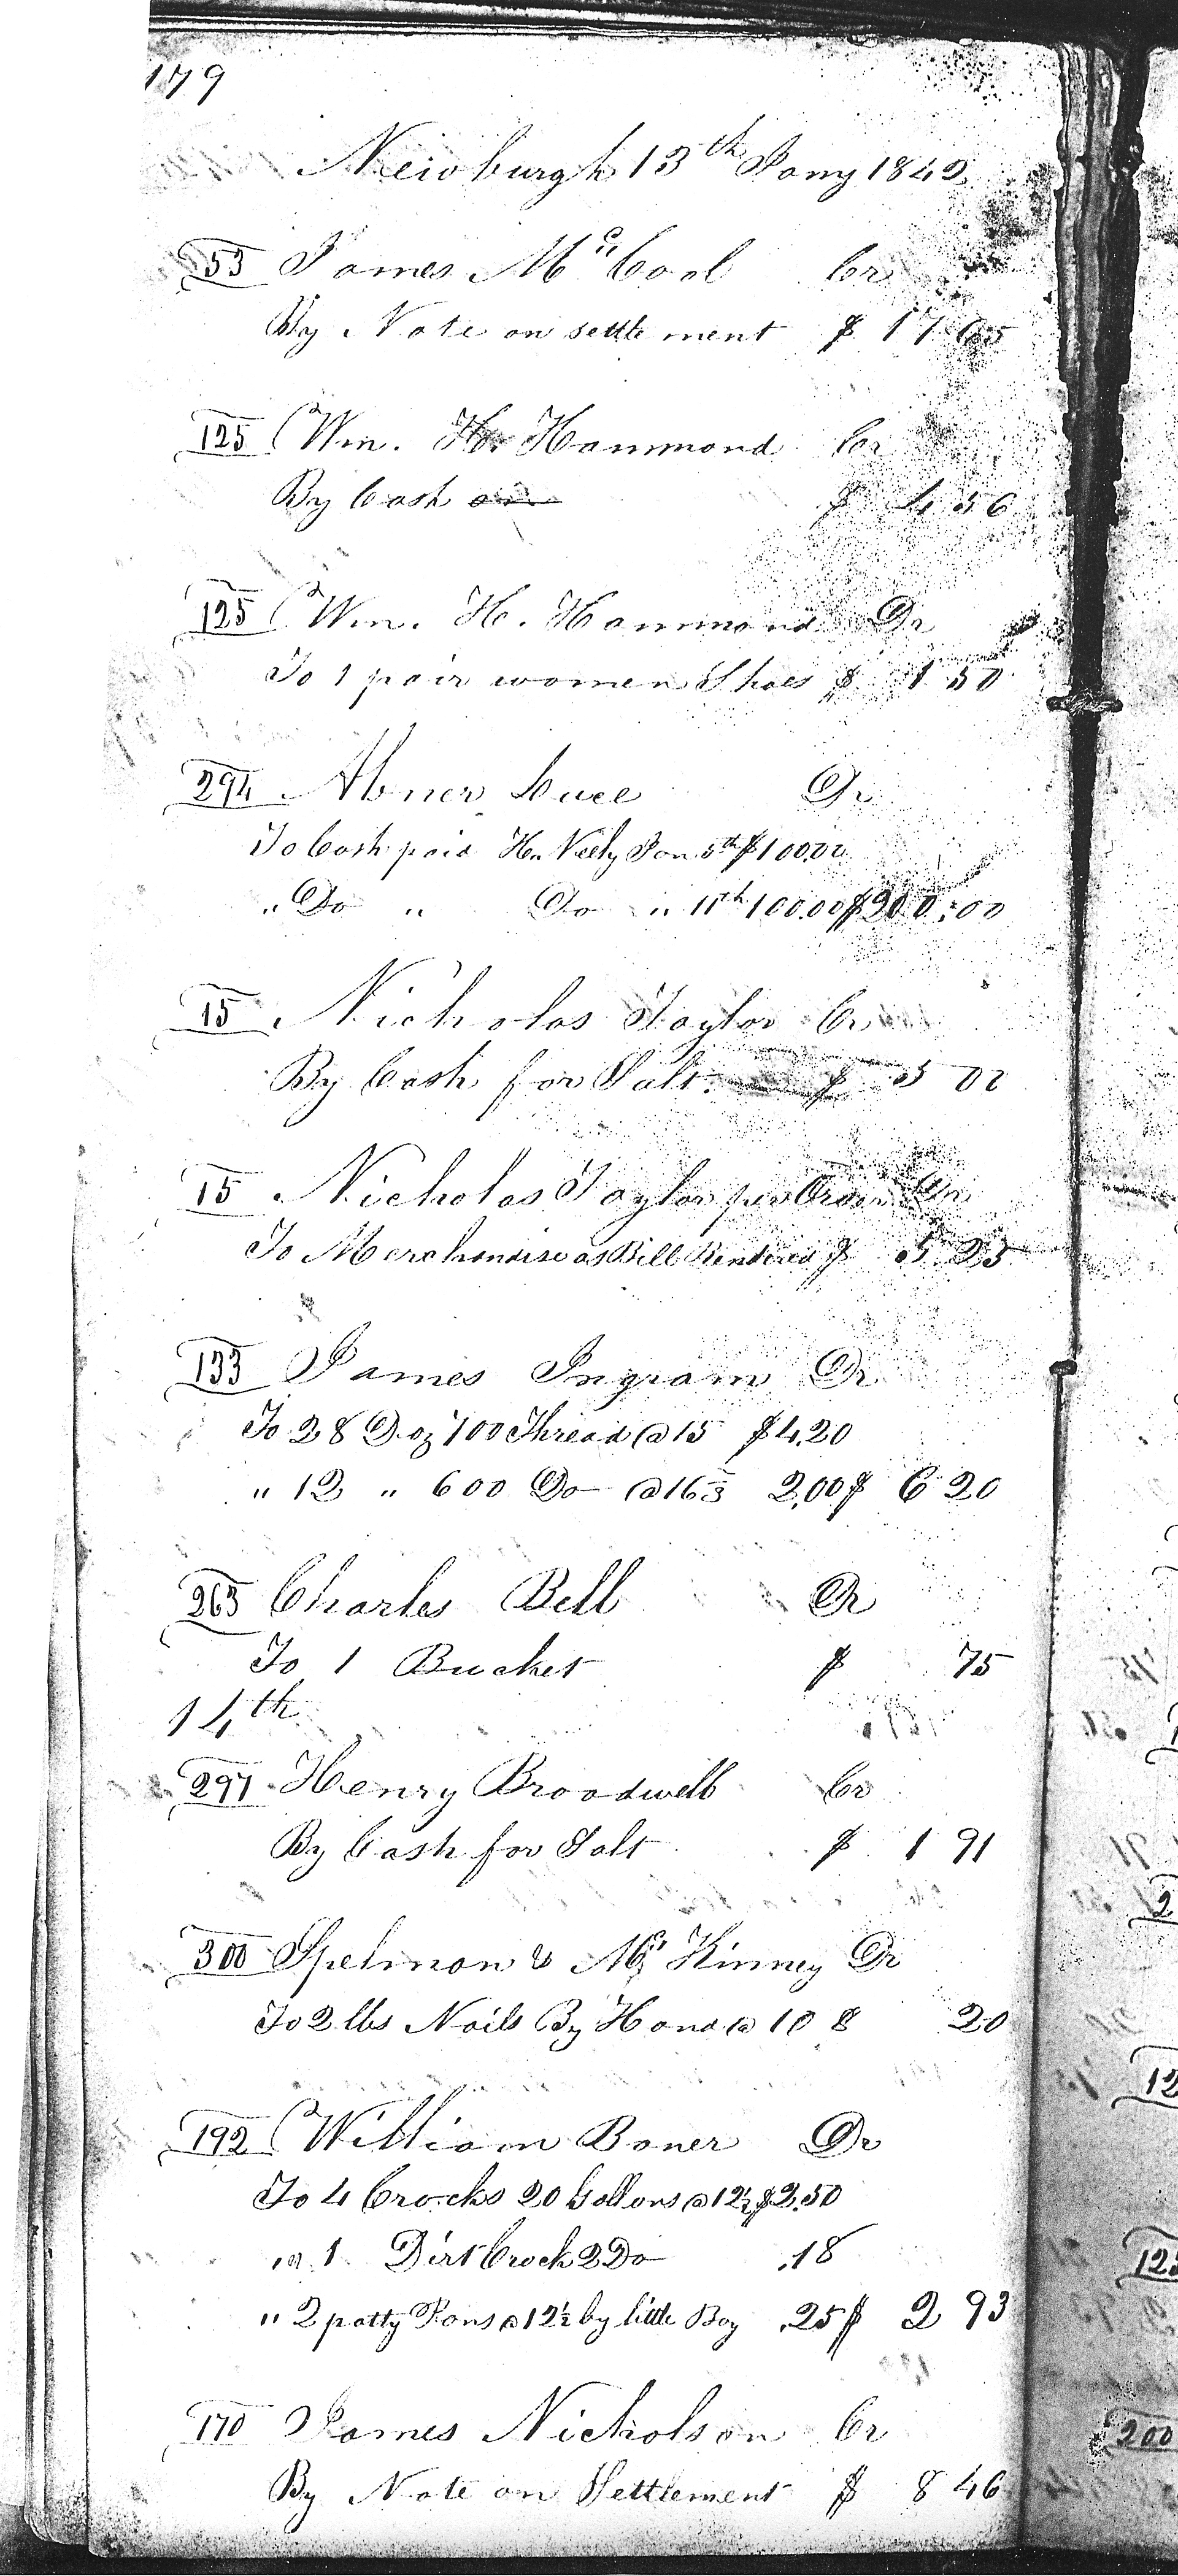 179
Newburgh 13th Jany 1842
53 James McCool Cr
By Note on settlement $ 17 65
125 Wm. H. Hammond Cr
By Cash on $ 4 56
125 Wm. H. Hammond Dr
To 1 pair women Shoes $ 1 50
294 Abner Luce Dr
To Cash paid H. Neely Jan 5th $100.00
" Do " Do " 11th 100.00 $200:00
15 Nicholas Taylor Cr
By Cash for Salt $ 5 02
15 Nicholas Taylor per Order Dr
To Merchandise as Bill Rendered $ 5 25
133 James Ingram Dr
To 28 Doz 700 Thread @ 15 $4.20
" 12 " 600 Do @ 16 2/3 2,00 $ 6 20
263 Charles Bell Dr
To 1 Bucket $ 75
14th
297 Henry Broadwell Cr
By Cash for Salt $ 1 91
300 Spelman & McKinney Dr
To 2 lbs Nails By Hand @ 10 $ 20
192 William Boner Dr
To 4 Crocks 20 Gallons @ 12½ $2.50
" 1 Dirt Crock 2 Do .18
" 2 patty Pans @ 12½ by little Boy .25 $ 2 93
170 James Nicholson Cr
By Note on Settlement $ 8 46